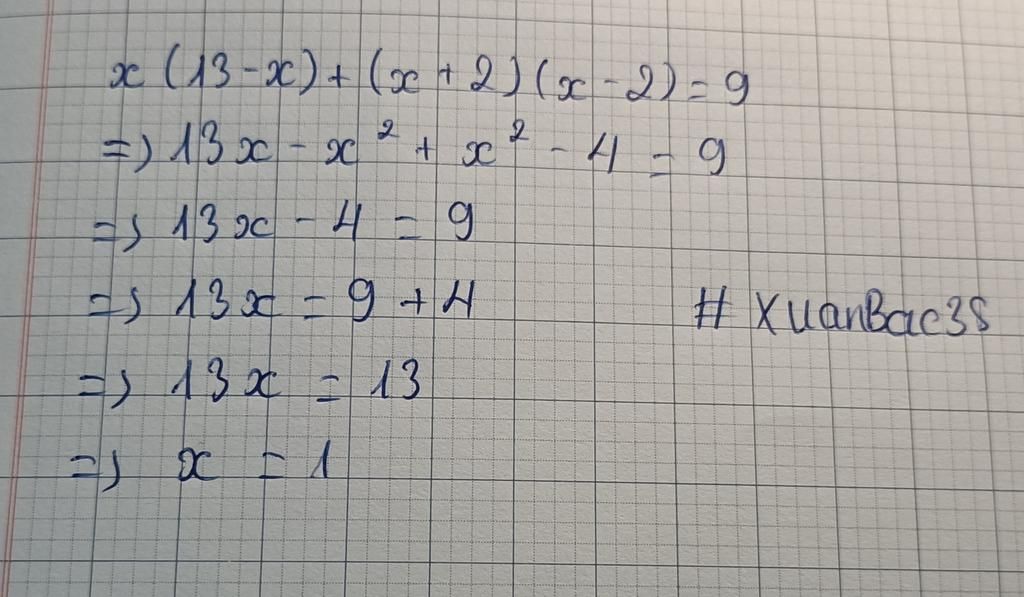 x(13-x)+(x+2)(x-2)=9
=> 13x - x² + x² - 4 = 9
=> 13x - 4 = 9
=> 13x = 9 + 4
# XuanBac3S
=> 13x = 13
=> x = 1